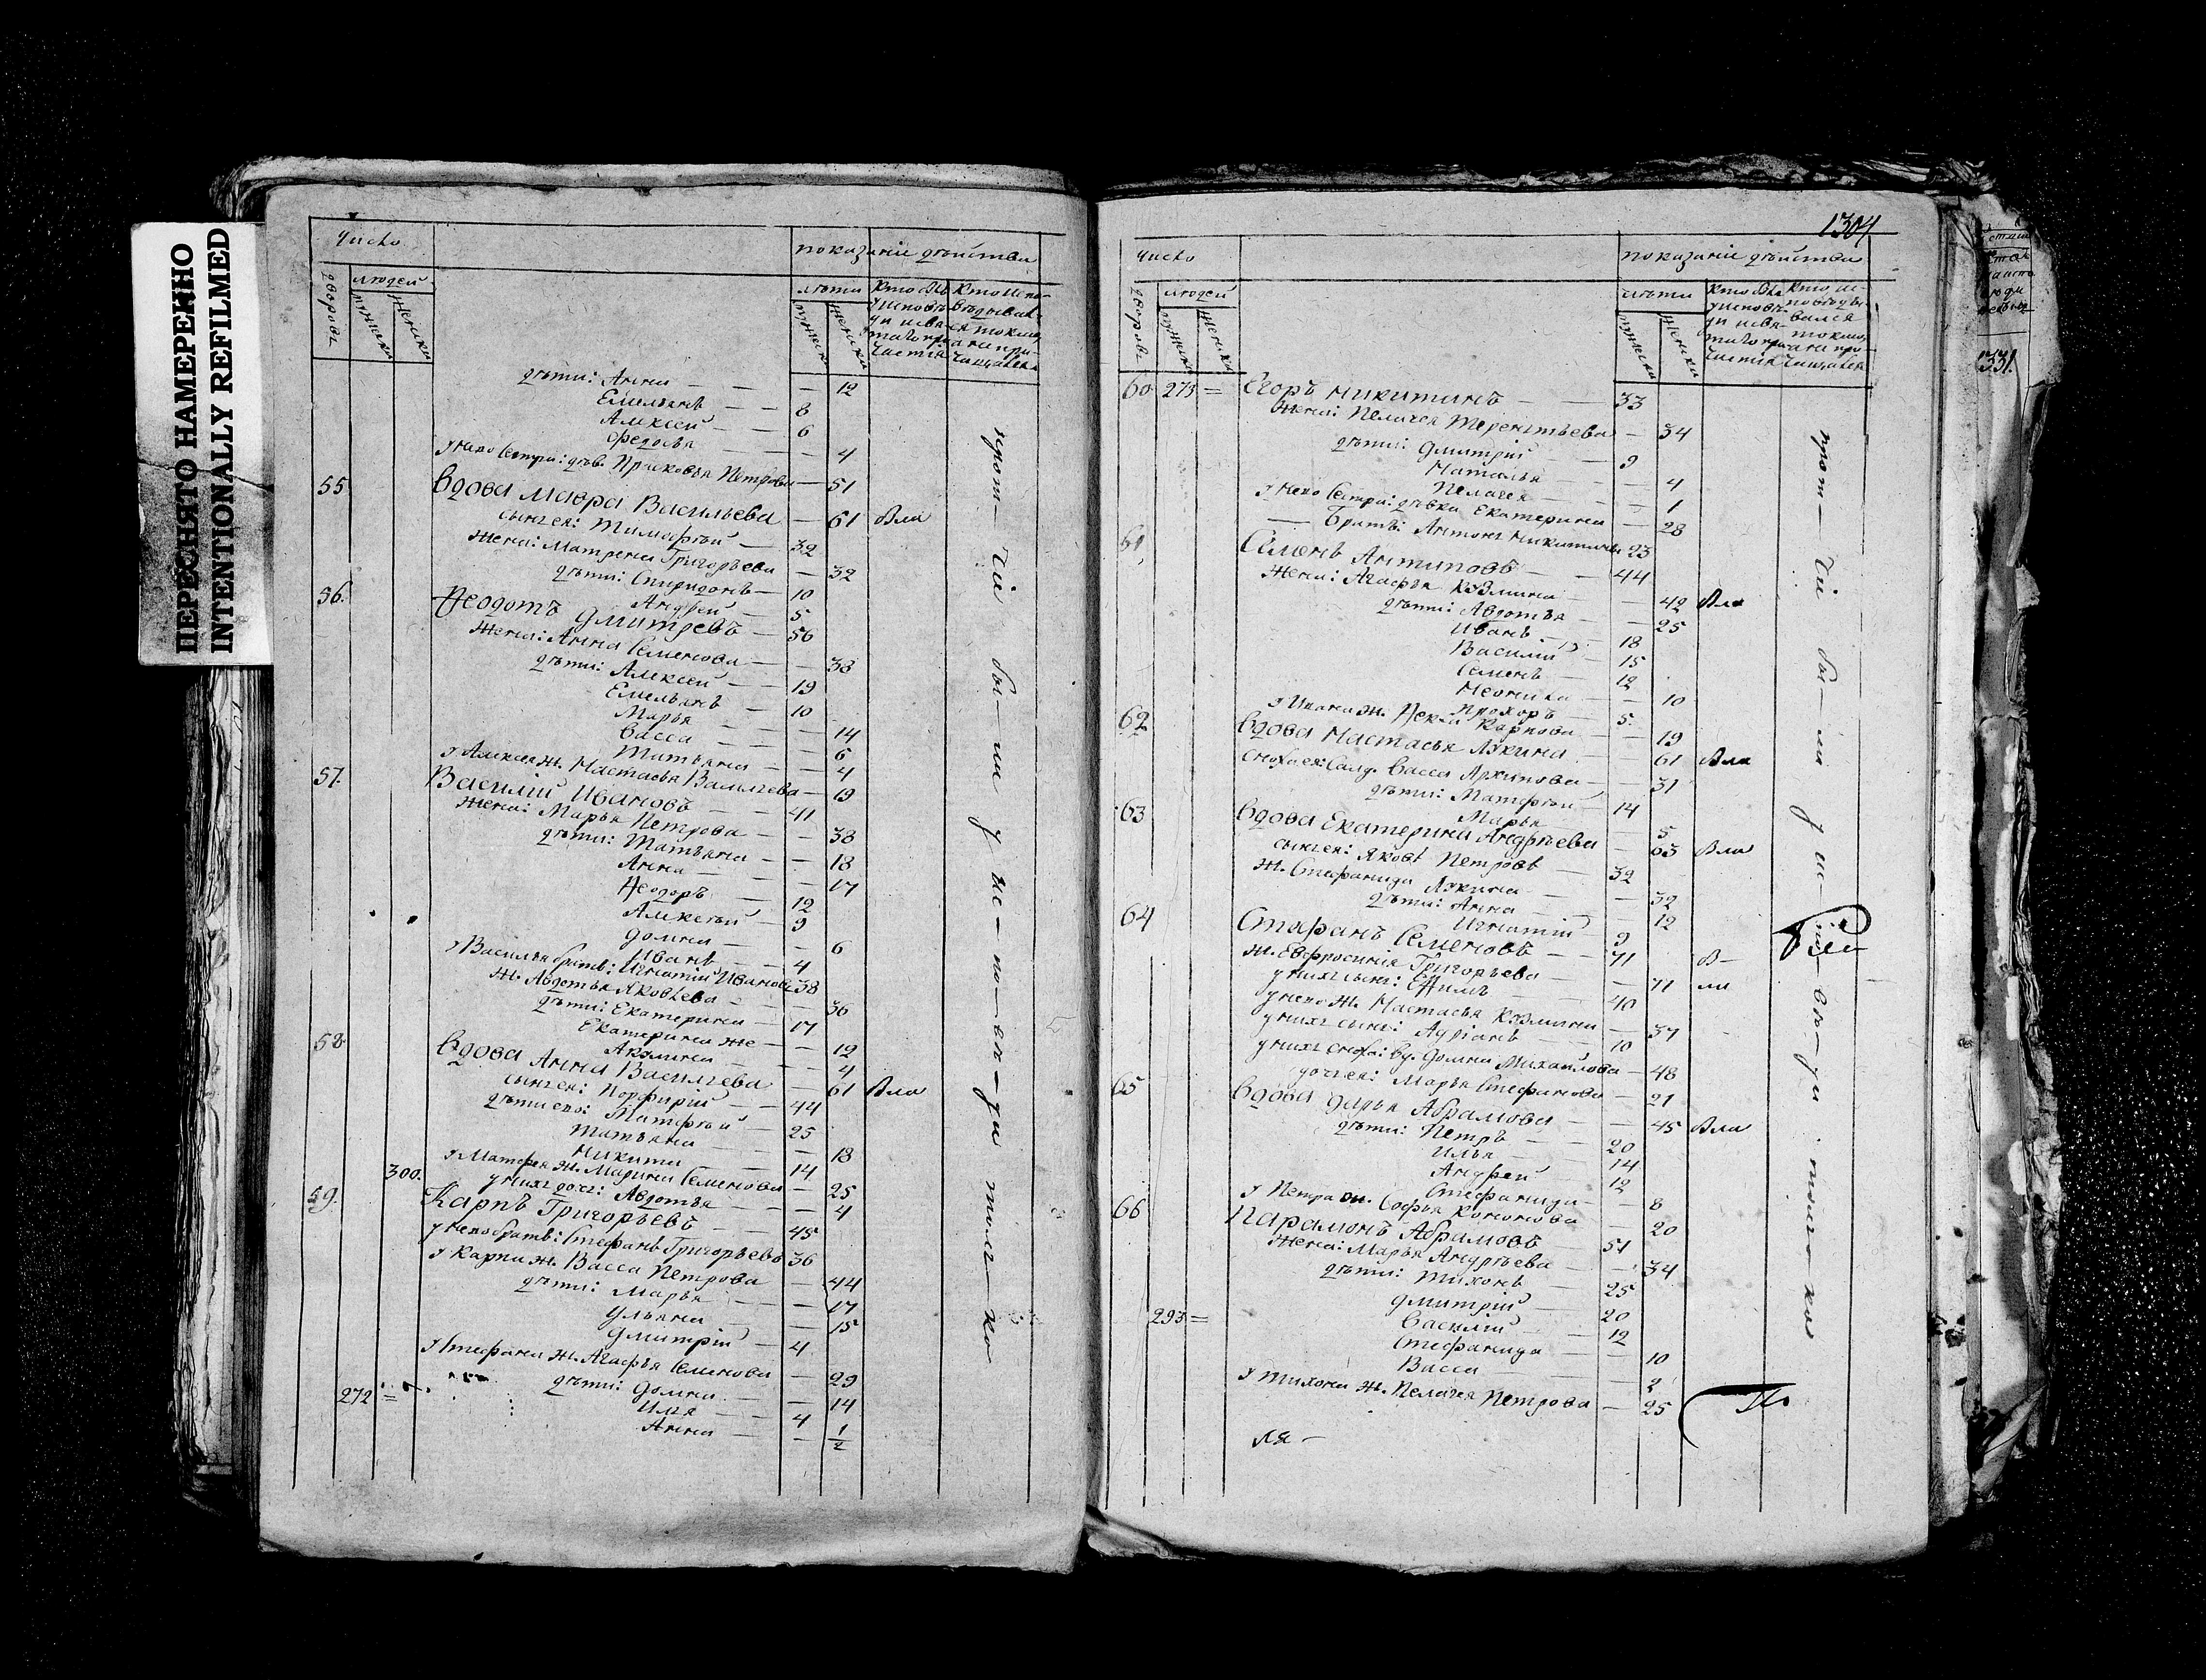 ПЕРЕСНЯТО НАМЕРЕННО
INTENTIONALLY REFILMED
Число
показаніе действа
дворовъ
людей
мужеска
женска
лѣты
мужеска
женска
дѣти: Анна — — — 12
Емельянъ — — 8
Алексей — — 6
Федосья — — — 4
у него сестра: дѣв. Прасковья Петрова — 51
55. Вдова Мавра Васильева — 61 была
сынъ ея: Тимофѣй — 32
жена: Матрена Григорьева — 32
дѣти: Спиридонъ — 10
Андрей — 5
56. Ѳеодотъ Дмитревъ — 56
жена: Анна Семенова — — 38
дѣти: Алексей — — 19
Емельянъ — 10
Марья — — — 14
Васса — — — 6
Татьяна — — 4
у Алексея ж. Настасья Василъева — 19
57. Василій Ивановъ — 41
жена: Марья Петрова — — 38
дѣти: Татьяна — — 18
Анна — — — 17
Ѳеодоръ — 12
Алексѣй — 9
Домна — — 6
Иванъ — 4
у Василья братъ: Игнатій Ивановъ 38
ж. Авдотья Яковлева — — 36
дѣти: Екатерина — 17
Екатерина же — — 12
Акулина — — 4
58. Вдова Анна Василъева — 61 была
сынъ ея: Порфирій — — 44
дѣти его: Матфѣй — 25
Татьяна — — 18
Никита — 14
у Матфея ж. Марина Семенова — 25
300.
у нихъ дочь: Авдотья — — 4
59. Карпъ Григорьевъ — — 45
у него братъ: Стефанъ Григорьевъ 36
у Карпа ж. Васса Петрова — 44
дѣти: Марья — — 17
Ульяна — — 15
Дмитрій — 4
у Стефана ж. Агафья Семенова — 29
дѣти: Домна — — 14
272 =
Илья — — 4
Анна — — 1/2
прот — чіи бы — ли у ис — по — ве — ди толь — ко
1304
Число
показаніе действа
дворовъ
людей
мужеска
женска
лѣты
мужеска
женска
60. 273 = Егоръ Никитинъ — — 33
жена: Пелагея Терентьева — 34
дѣти: Дмитрій — 9
Наталья — — 4
Пелагея — — 1
у него сестра: дѣвка Екатерина — 28
— братъ: Антонъ Никитинъ 23
61. Семенъ Антиповъ — — 44
жена: Агафья Кузмина — — 42 была
дѣти: Авдотья — — 25
Иванъ — 18
Василій — 15
Семенъ — 12
Неонила — — 10
Прохоръ — 5
у Ивана ж. Ѳекла Карпова — — 19
62. Вдова Настасья Лукина — — 61 была
сноха ея: салд. Васса Архипова — 31
дѣти: Матфѣй — 14
Марья — 5
63. Вдова Екатерина Андрѣева — 63 была
сынъ ея: Яковъ Петровъ — 32
ж. Стефанида Лукина — — 32
дѣти: Анна — — 12
Игнатій — 9
64. Стефанъ Семеновъ — — 71 бы-
ж. Евфросинія Григорьева — — 71 ли
у нихъ сынъ: Ефимъ — 40
у него ж. Настасья Кузмина — 37
у нихъ сынъ: Адріанъ — 10
у нихъ сноха: вд. Домна Михайлова — 48
дочь ея: Марья Стефанова — 21
65. Вдова Дарья Абрамова — — 45 была
дѣти: Петръ — — 20
Илья — — 14
Андрей — 12
Стефанида — — 8
у Петра ж. Софья Кононова — — 20
66. Парамонъ Абрамовъ — 51
жена: Марья Андрѣева — — 34
дѣти: Тихонъ — 25
Дмитрій — 20
293 =
Василій — 12
Стефанида — — 10
Васса — — 2
у Тихона ж. Пелагея Петрова — 25
ля —
прот — чіи бы — ли у ис — по — ве — ди толь — ко
331.